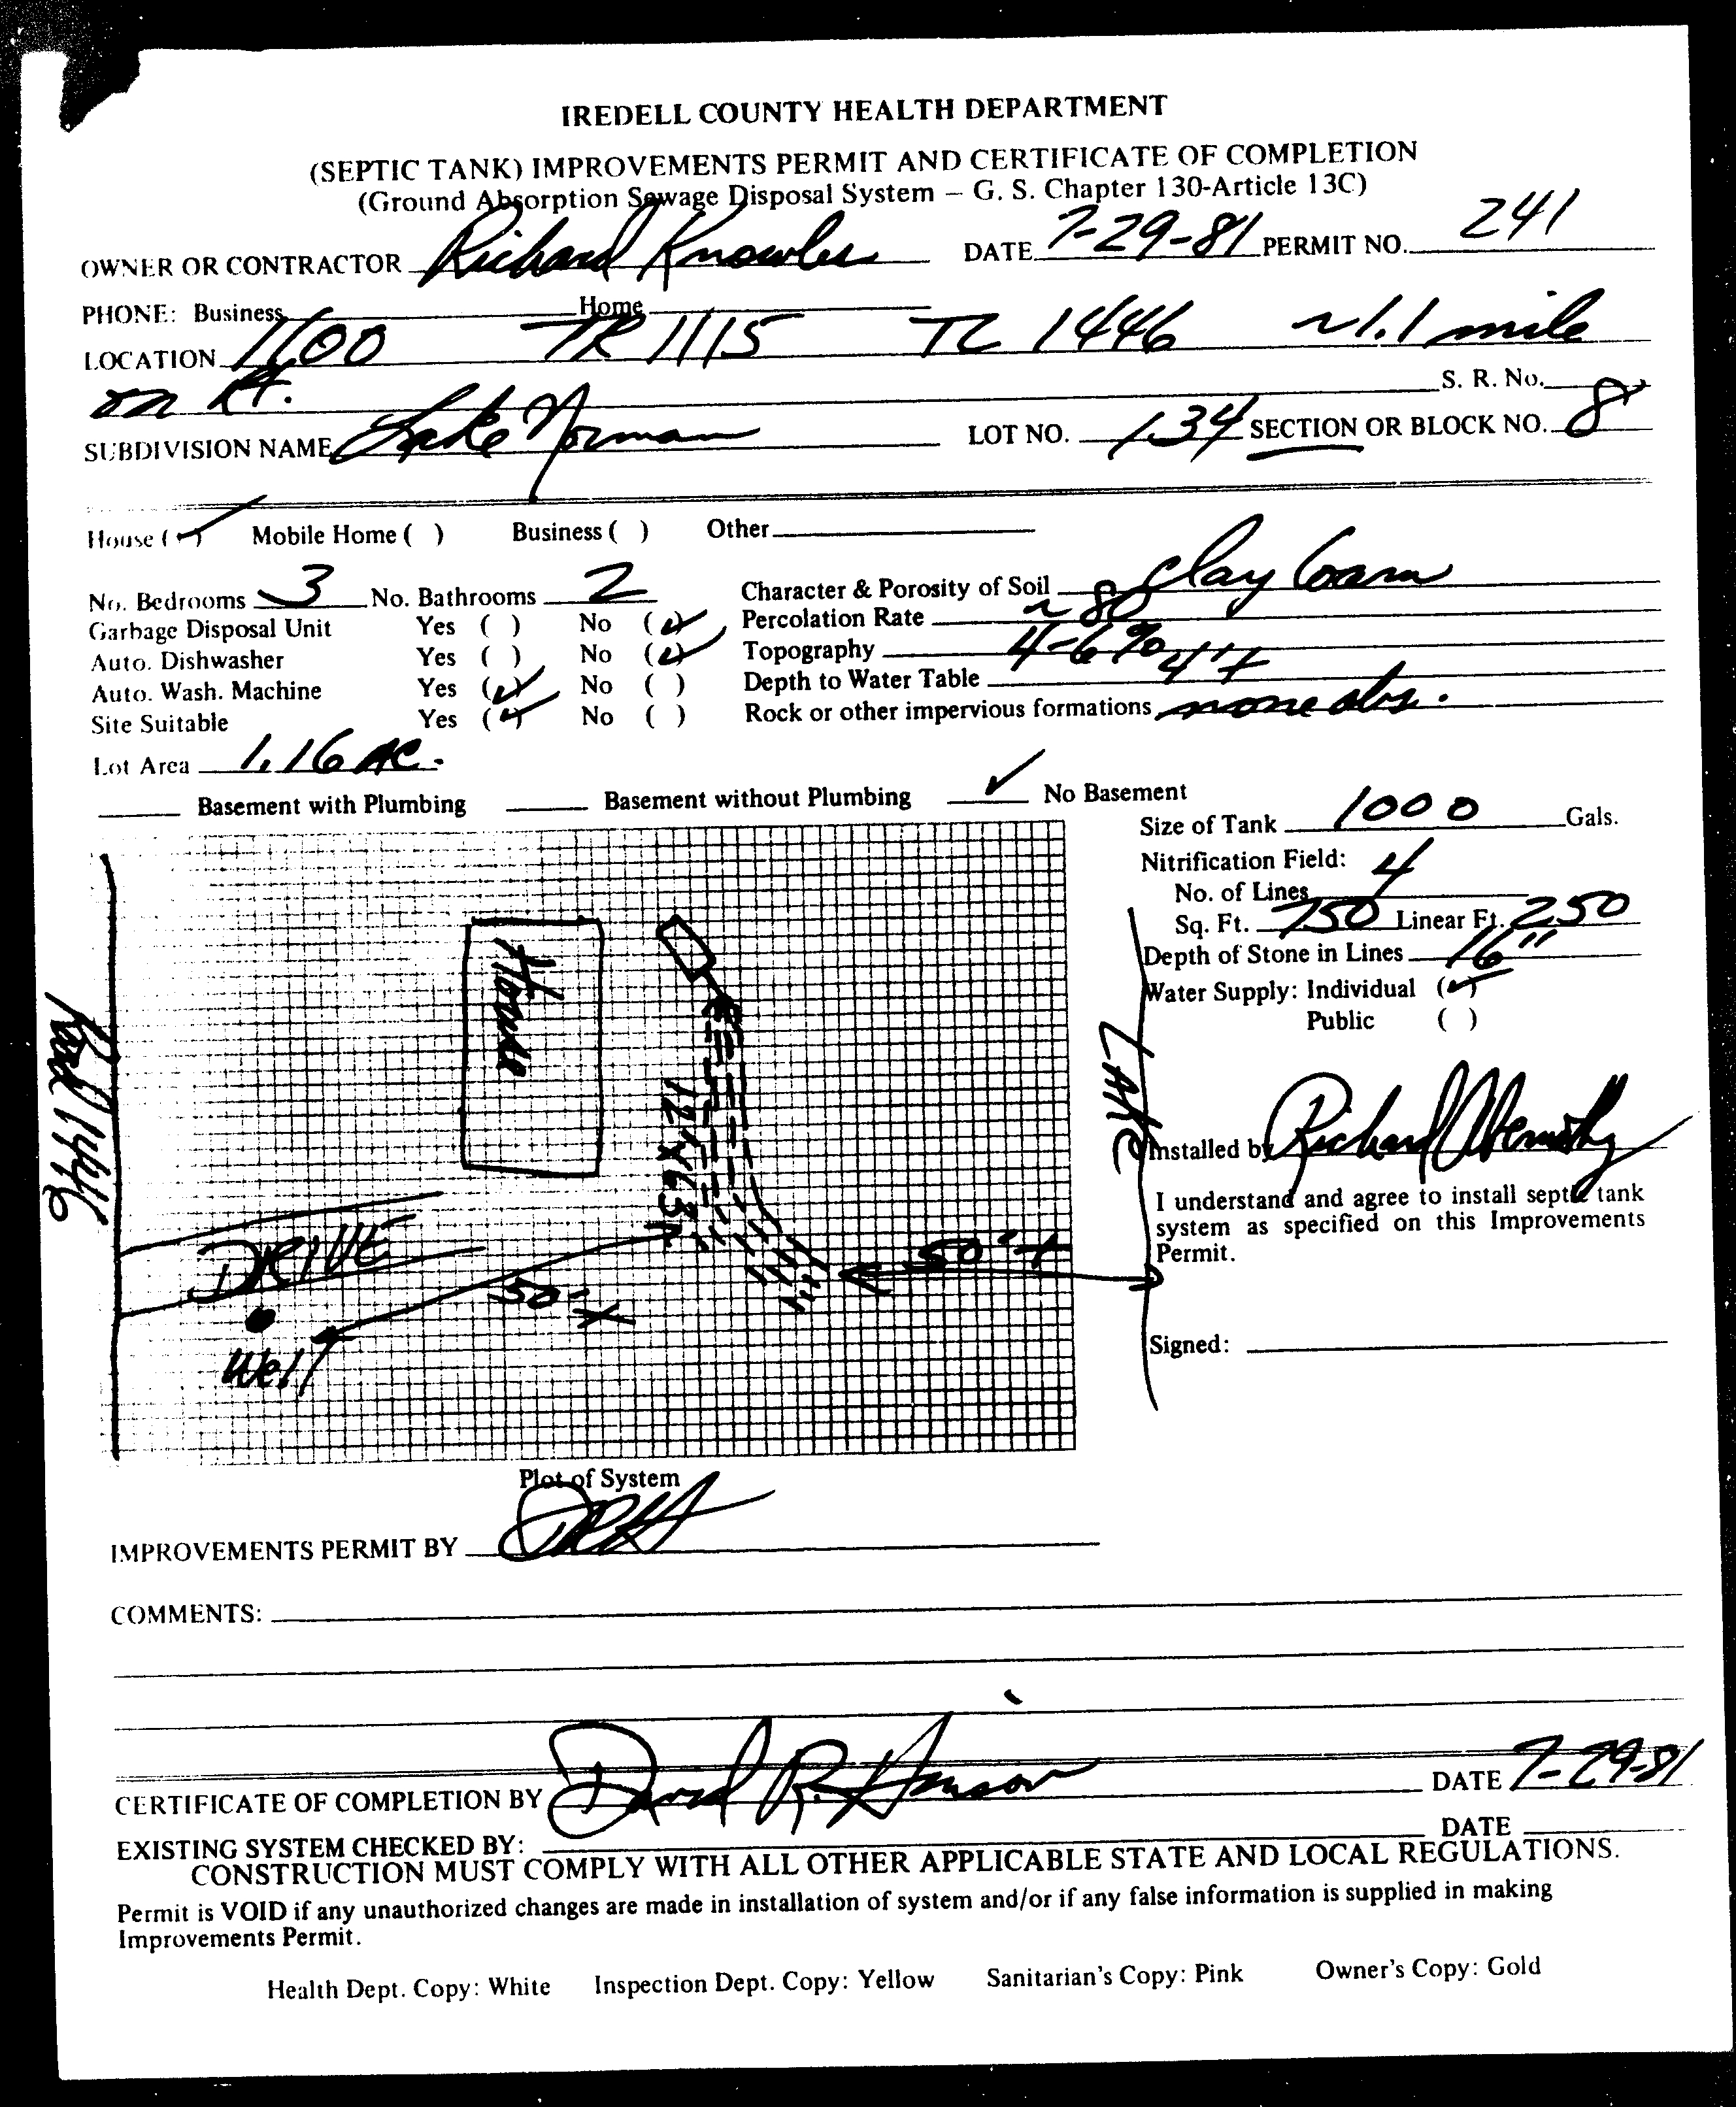 IREDELL COUNTY HEALTH DEPARTMENT
(SEPTIC TANK) IMPROVEMENTS PERMIT AND CERTIFICATE OF COMPLETION
(Ground Absorption Sewage Disposal System – G. S. Chapter 130-Article 13C)
OWNER OR CONTRACTOR Richard Knowles DATE 7-29-81 PERMIT NO. 241
PHONE: Business Home
LOCATION 1100 TR 1115 TL 1446 ~1.1 mile
on Rt. S. R. No.
SUBDIVISION NAME Lake Norman LOT NO. 134 SECTION OR BLOCK NO. 8
House (✓) Mobile Home ( ) Business ( ) Other
No. Bedrooms 3 No. Bathrooms 2 Character & Porosity of Soil clay loam
Garbage Disposal Unit Yes ( ) No (✓) Percolation Rate ~ 80
Auto. Dishwasher Yes ( ) No (✓) Topography 4-6%
Auto. Wash. Machine Yes (✓) No ( ) Depth to Water Table 4'+
Site Suitable Yes (✓) No ( ) Rock or other impervious formations none obs.
Lot Area 1.16 AC.
Basement with Plumbing Basement without Plumbing ✓ No Basement
Size of Tank 1000 Gals.
Nitrification Field:
No. of Lines 4
Sq. Ft. 750 Linear Ft. 250
Depth of Stone in Lines 16"
Water Supply: Individual (✓)
Public ( )
House
Road 1446
Lake
DRIVE
50'+
50'+
Well
Installed by Richard
I understand and agree to install septic tank
system as specified on this Improvements
Permit.
Signed:
Plot of System
IMPROVEMENTS PERMIT BY DRH
COMMENTS:
CERTIFICATE OF COMPLETION BY David R. Hinson DATE 7-29-81
EXISTING SYSTEM CHECKED BY: DATE
CONSTRUCTION MUST COMPLY WITH ALL OTHER APPLICABLE STATE AND LOCAL REGULATIONS.
Permit is VOID if any unauthorized changes are made in installation of system and/or if any false information is supplied in making
Improvements Permit.
Health Dept. Copy: White Inspection Dept. Copy: Yellow Sanitarian's Copy: Pink Owner's Copy: Gold